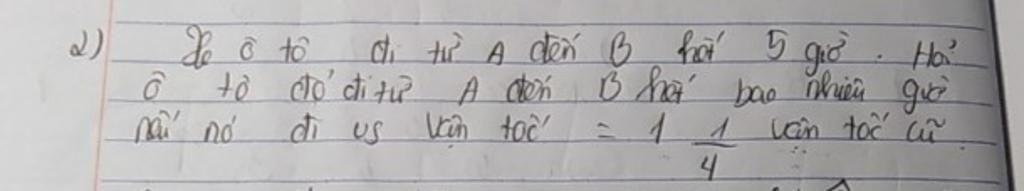 2) Xe ô tô đi từ A đến B hết 5 giờ. Hỏi
ô tô đó đi từ A đến B hết bao nhiêu giờ
nếu nó đi vs vận tốc = 1 1/4 vận tốc cũ